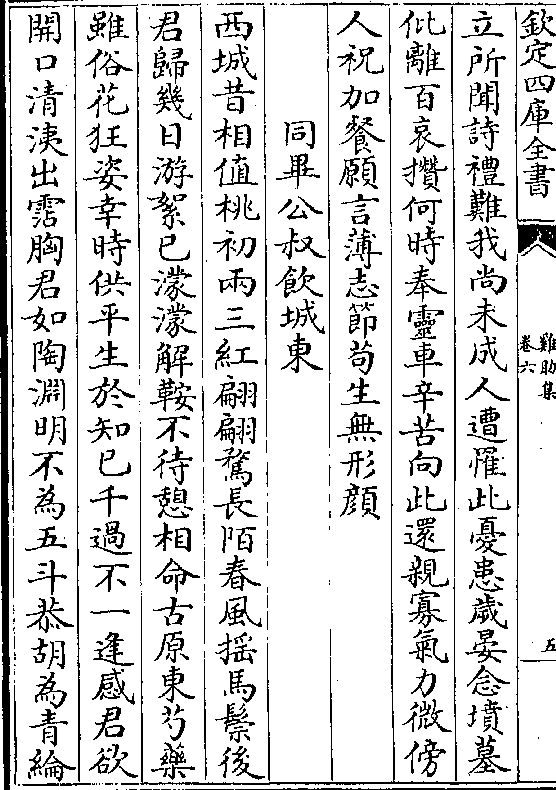 欽定四庫全書
雞肋集
卷六
五
立所聞詩禮難我尚未成人遭罹此憂患歲晏念墳墓
仳離百哀攢何時奉靈車辛苦向此還親寡氣力微傍
人祝加餐願言薄志節苟生無形顔
同畢公叔飲城東
西城昔相值桃初兩三紅翩翩騖長陌春風揺馬鬃後
君歸幾日游絮已濛濛解鞍不待憩相命古原東芍藥
雖俗花狂姿幸時供平生於知已千過不一逢感君欲
開口清洟出霑胸君如陶淵明不為五斗恭胡為青綸